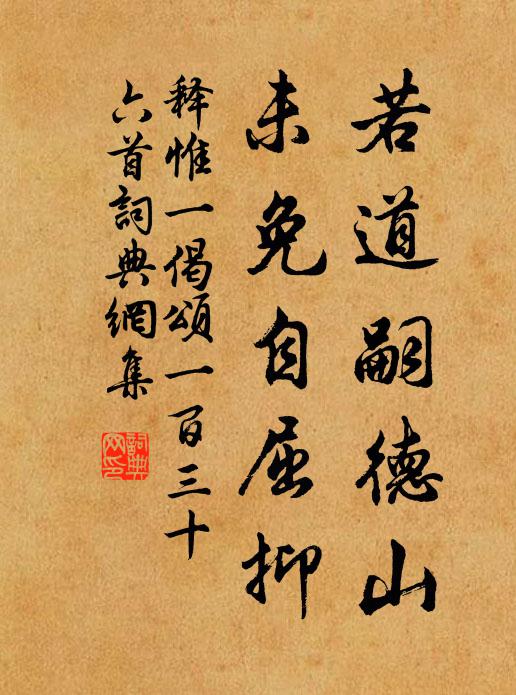 若道嗣德山
未免自屈抑
释惟一偈頌一百三十
六首詞典網集
詞典网印